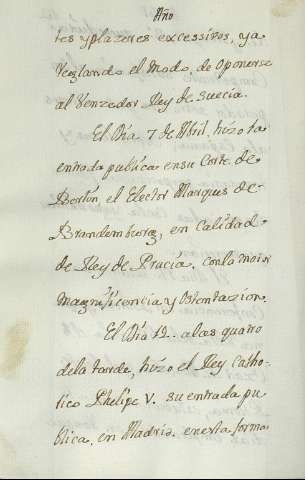 Año
tes y plazeres excessivos, ya
Reglando el modo, de Oponerse
al Venzedor Rey de Suecia.
El Día 7 de Abril, hizo la
entrada publica en su Corte de
Berlín, el Elector Marques de
Brandemburg, en Calidad
de Rey de Prucia, con la maior
magnificencia y Ostentazion.
El Día 12.. a las quatro
de la tarde, hizo el Rey Catho-
lico Phelipe V. su entrada pu-
blica, en Madrid. en esta forma